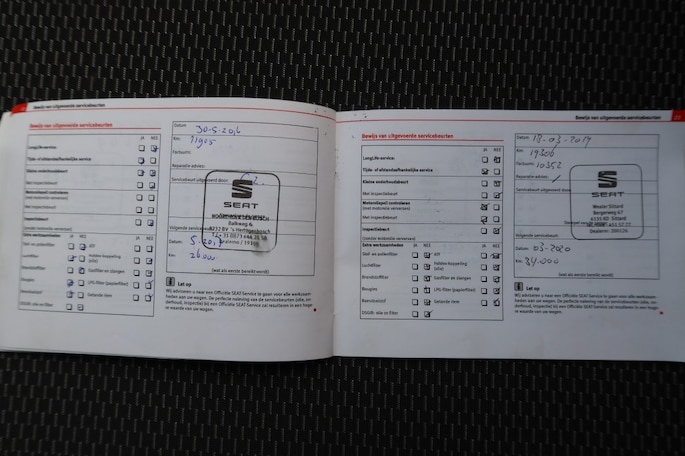 Bewijs van uitgevoerde servicebeurten
Bewijs van uitgevoerde servicebeurten
JA NEE
LongLife-service:
Tijds- of afstandsafhankelijke service
Kleine onderhoudsbeurt
Met inspectiebeurt
Motorolepeil controleren
(met motorolie verversen)
Met inspectiebeurt
Inspectiebeurt
(zonder motorolie verversen)
Extra werkzaamheden
JA NEE
JA NEE
Stof- en pollenfilter
ATF
Luchtfilter
Haldex-koppeling
(olie)
Brandstoffilter
Gasfilter en slangen
Bougies
LPG-filter (papierfilter)
Remvloeistof
Getande riem
DSG®: olie en filter
Datum
30-5-2016
Km:
11905
Factuurnr.
Reparatie-advies:
Servicebeurt uitgevoerd door:
SEAT
Balkweg 6
5232 BV 's-Hertogenbosch
Volgende servicebeurt
Datum:
Km:
26000
(wat als eerste bereikt wordt)
Let op
Wij adviseren u naar een Officiële SEAT Service te gaan voor alle werkzaam-
heden aan uw wagen. De perfecte naleving van de servicebeurten (olie, on-
derhoud, inspectie) bij een Officiële SEAT Service zal resulteren in een hoge-
re waarde van uw wagen.
Bewijs van uitgevoerde servicebeurten
Bewijs van uitgevoerde servicebeurten
JA NEE
LongLife-service:
Tijds- of afstandsafhankelijke service
Kleine onderhoudsbeurt
Met inspectiebeurt
Motorolepeil controleren
(met motorolie verversen)
Met inspectiebeurt
Inspectiebeurt
(zonder motorolie verversen)
Extra werkzaamheden
JA NEE
JA NEE
Stof- en pollenfilter
ATF
Luchtfilter
Haldex-koppeling
(olie)
Brandstoffilter
Gasfilter en slangen
Bougies
LPG-filter (papierfilter)
Remvloeistof
Getande riem
DSG®: olie en filter
Datum
18-03-2019
Km:
Factuurnr.
10352
Reparatie-advies:
Servicebeurt uitgevoerd door:
SEAT
Sittard
Bergerweg 67
Sittard
Volgende servicebeurt:
Datum:
03-2020
Km:
34.000
(wat als eerste bereikt wordt)
Let op
Wij adviseren u naar een Officiële SEAT Service te gaan voor alle werkzaam-
heden aan uw wagen. De perfecte naleving van de servicebeurten (olie, on-
derhoud, inspectie) bij een Officiële SEAT Service zal resulteren in een hoge-
re waarde van uw wagen.